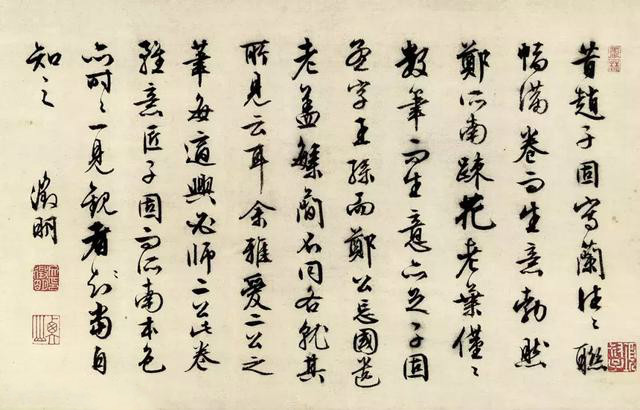 昔趙子固寫蘭往々聯
幅滿卷而生意勃然
鄭所南疎花老葉僅々
數筆而生意亦足子固
宋王孫而鄭公忘國遺
老蓋繁簡不同各就其
所見云耳余雅愛二公之
筆每適興必師二公此卷
雖意匠子固而所南本色
亦時々一見觀者則當自
知之
徵明